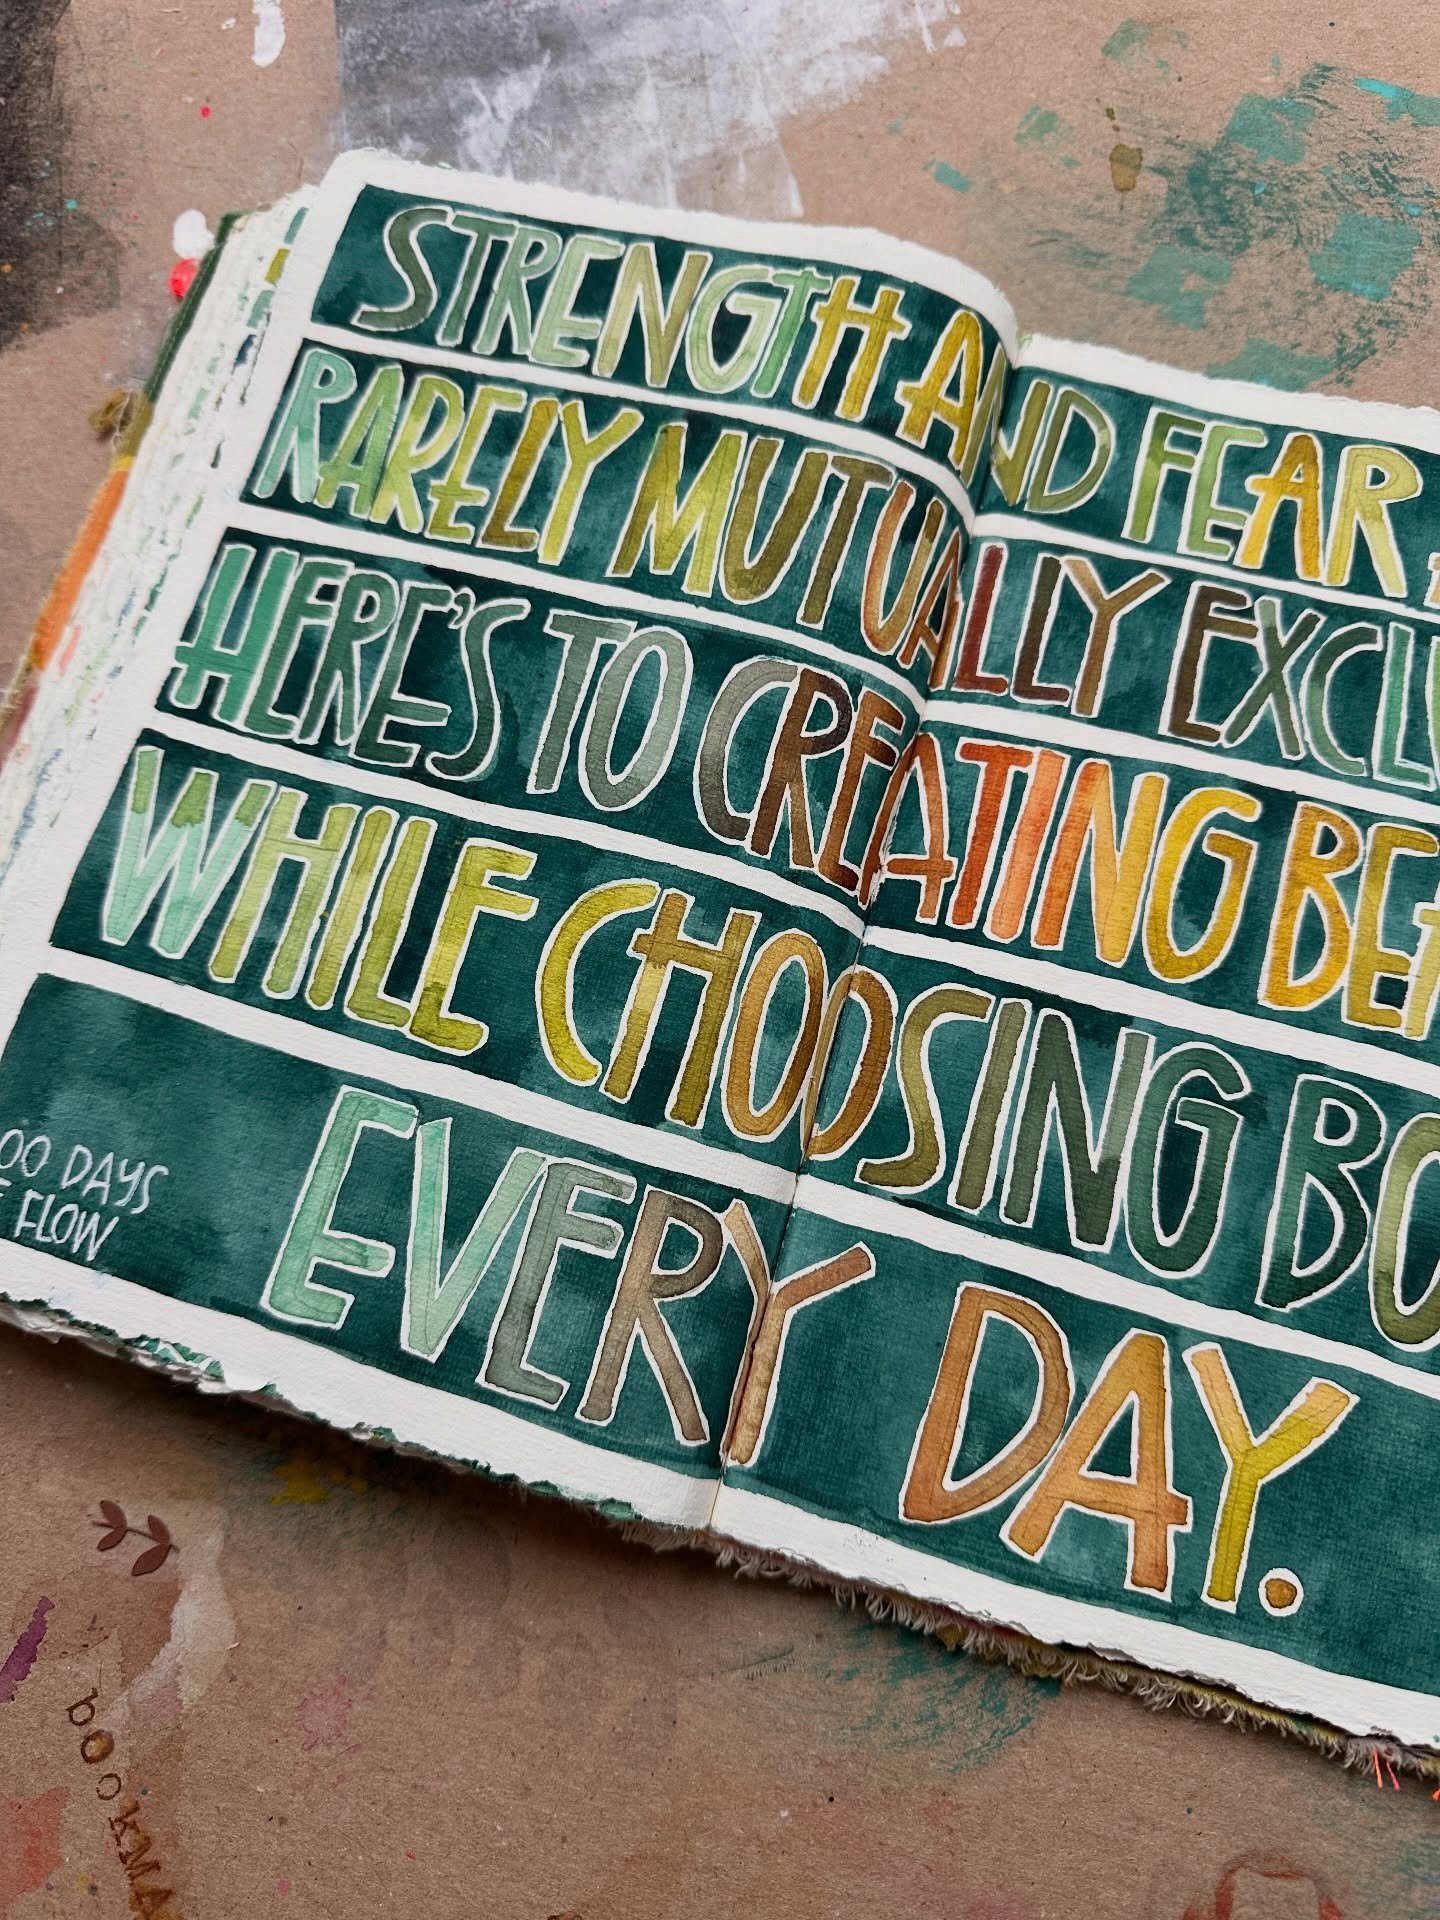 STRENGTH AND FEAR
RARELY MUTUALLY
HERE'S TO CREATING
WHILE CHOOSING
EVERY DAY.
DAYS
FLOW